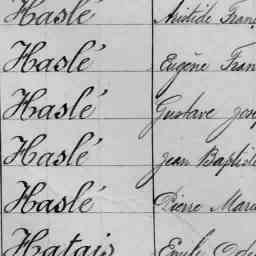 Haslé Aristide Franç
Haslé Eugène Fran
Haslé Gustave Jose
Haslé Jean Baptiste
Haslé Pierre Mari
Hatais Emile